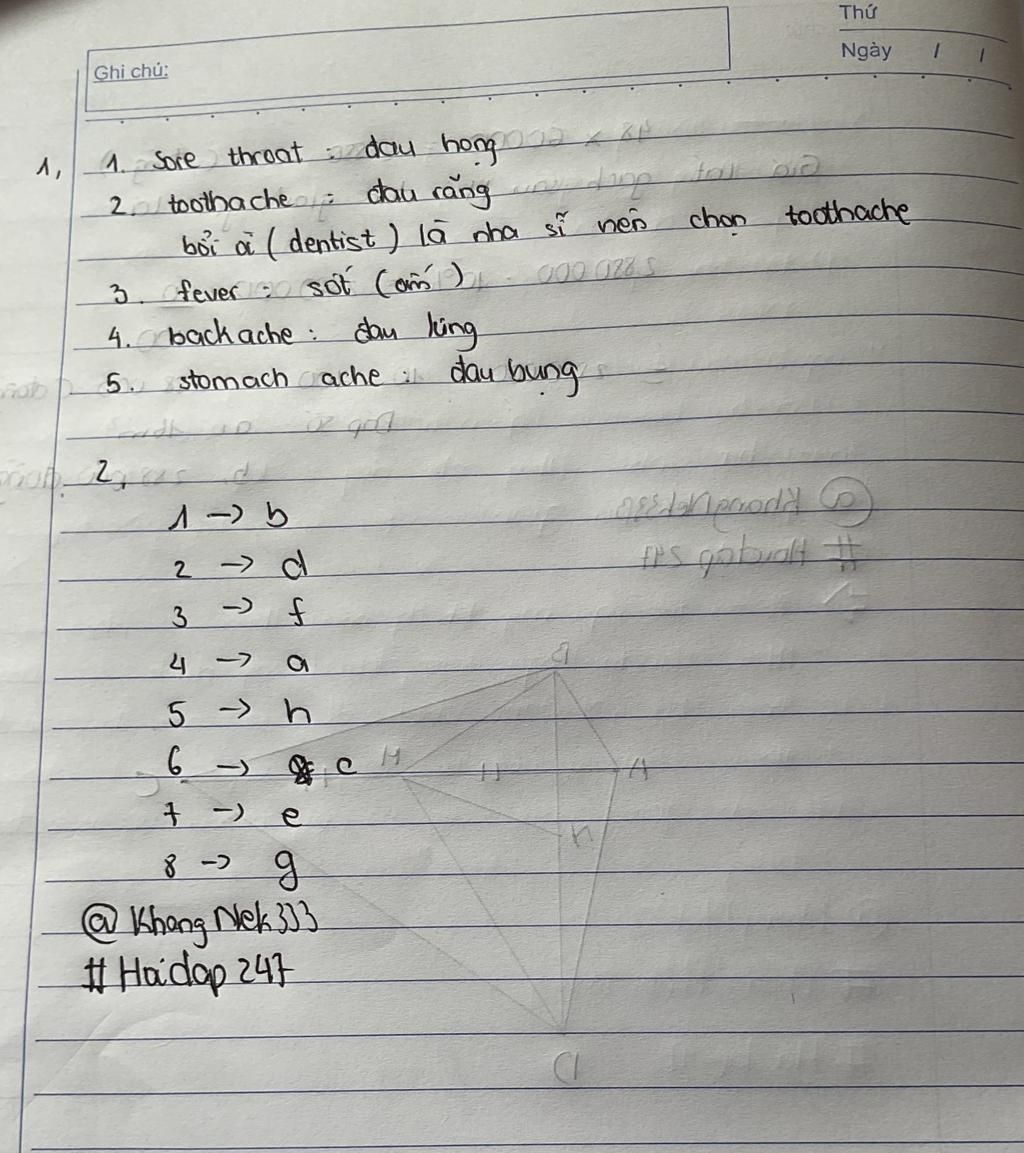 Thứ
Ghi chú:
Ngày / /
1, 1. Sore throat : đau họng
2. toothache : đau răng
bởi vì (dentist) là nha sĩ nên chọn toothache
3. fever : sốt (ốm)
4. backache : đau lưng
5. stomach ache : đau bụng
2,
1 -> b
2 -> d
3 -> f
4 -> a
5 -> h
6 -> c
7 -> e
8 -> g
@KhangNek333
#Hoidap247